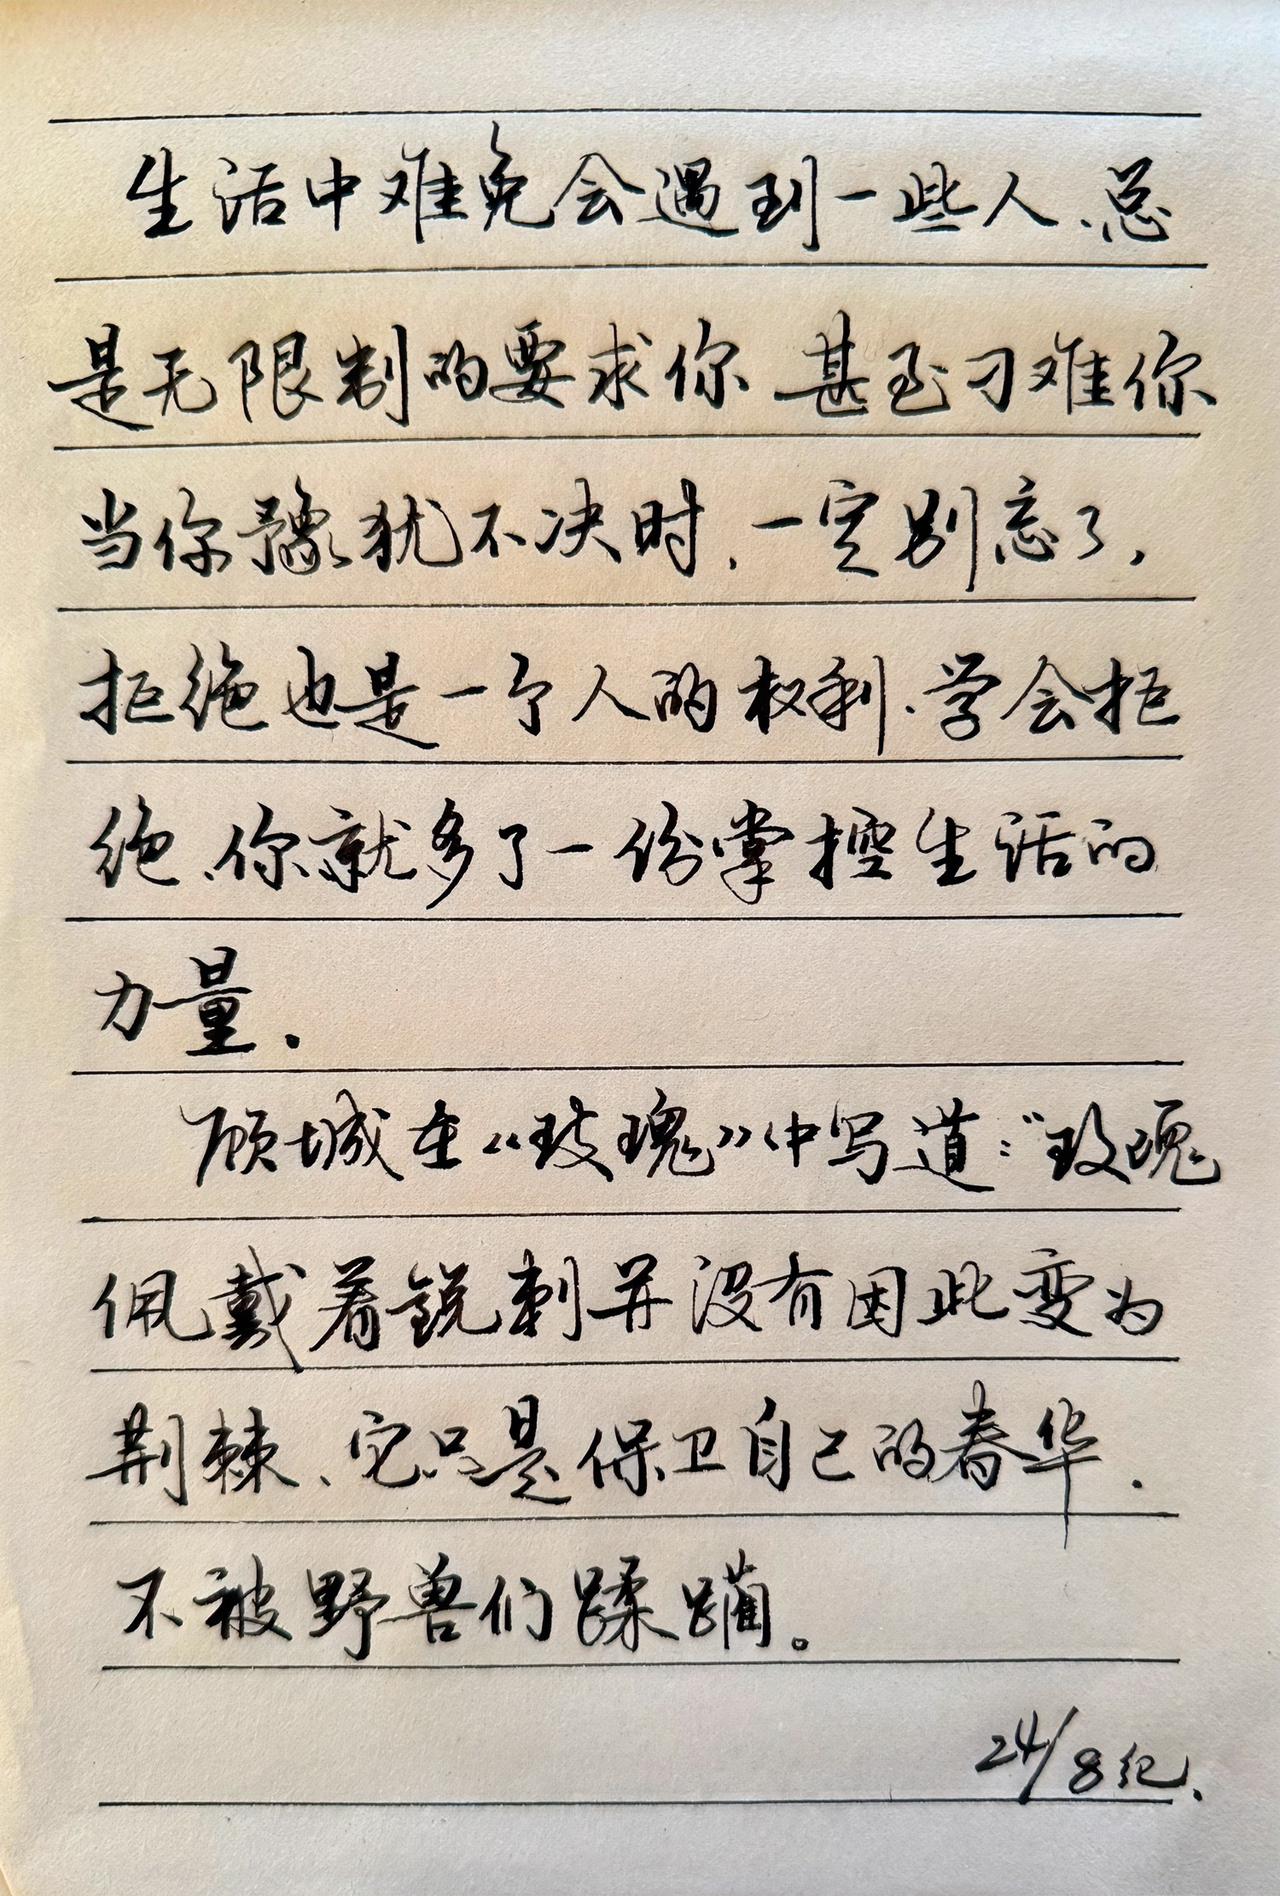 生活中难免会遇到一些人、总
是无限制的要求你 甚至刁难你
当你豫犹不决时，一定别忘了，
拒绝也是一个人的权利、学会拒
绝、你就多了一份掌控生活的
力量.
顾城在《玫瑰》中写道："玫瑰
佩戴着锐刺并没有因此变为
荆棘、它只是保卫自己的春华.
不被野兽们蹂躏。
24/8纪.